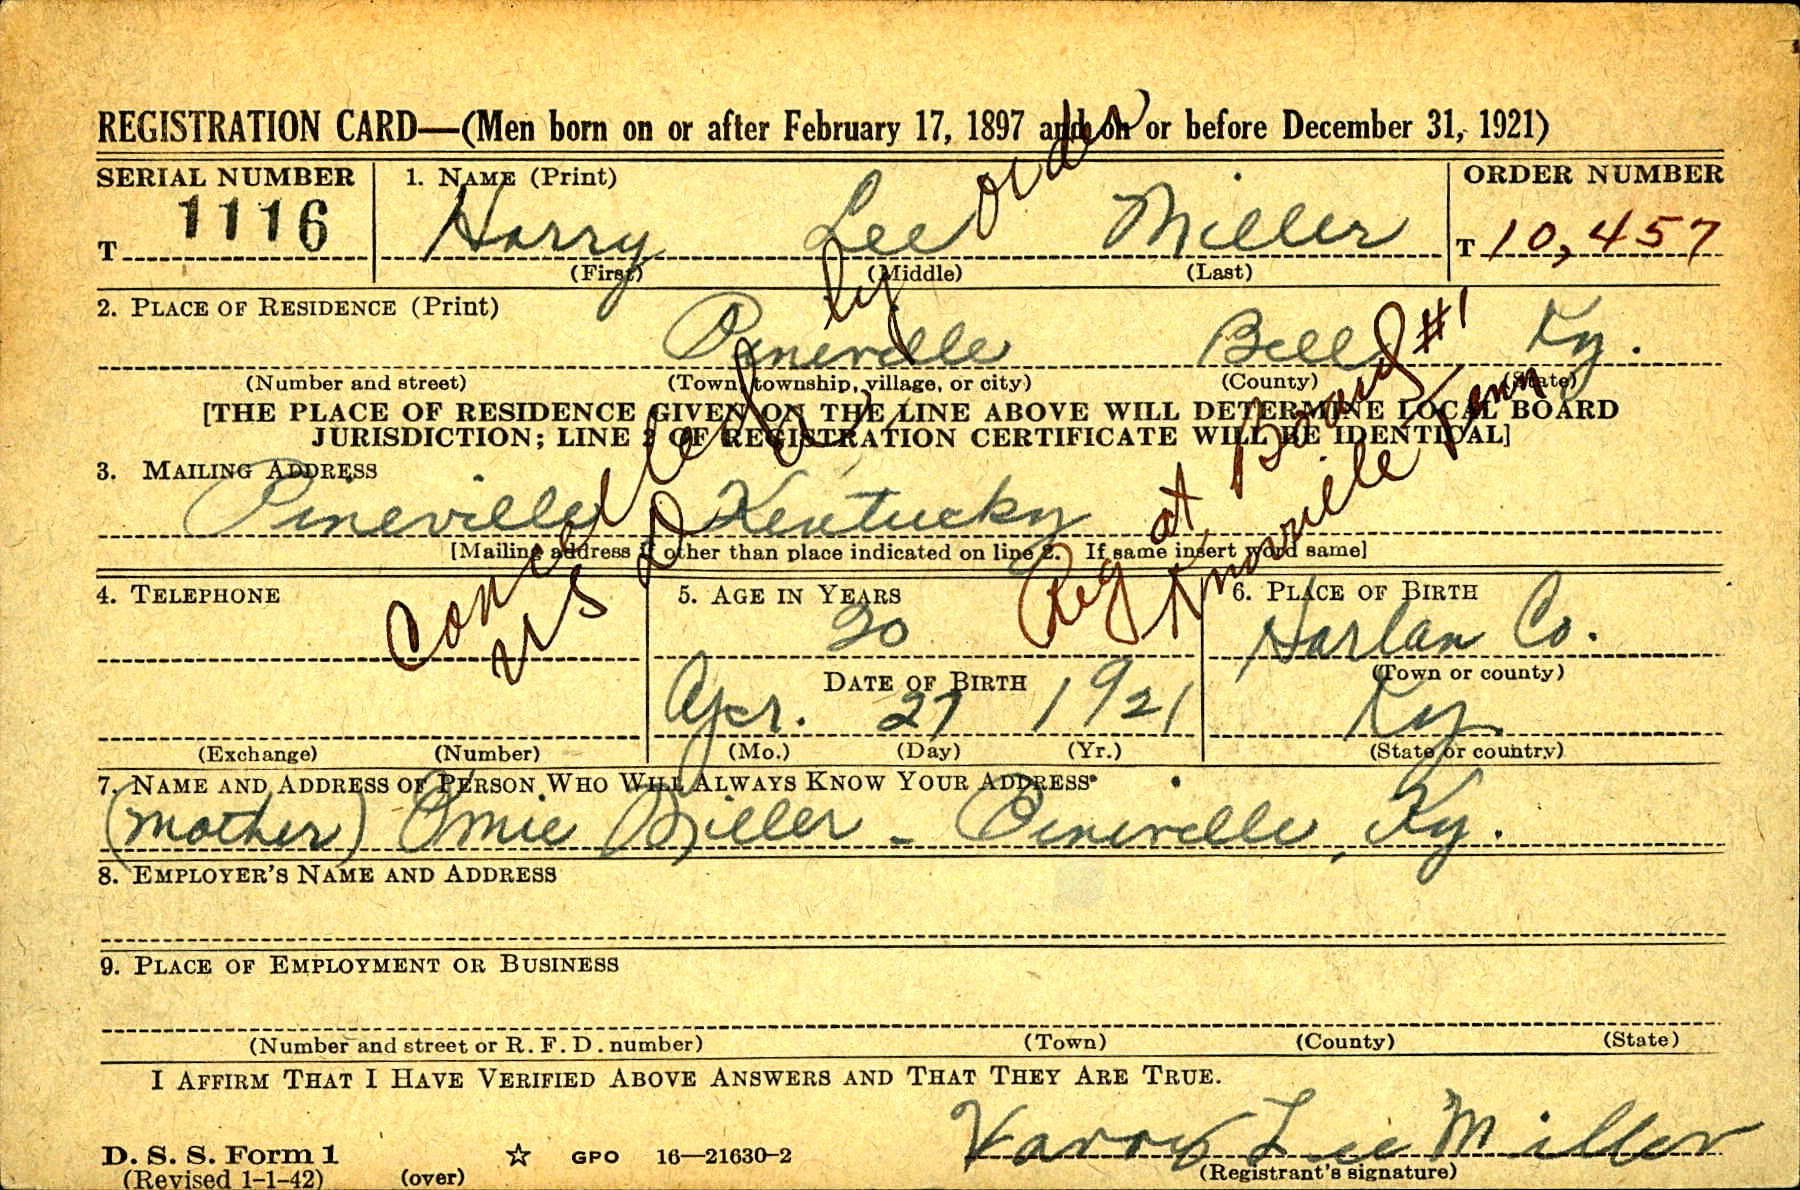 REGISTRATION CARD—(Men born on or after February 17, 1897 and on or before December 31, 1921)
SERIAL NUMBER
1. NAME (Print)
ORDER NUMBER
T 1116
Harry Lee Miller
T 10,457
(First) (Middle) (Last)
2. PLACE OF RESIDENCE (Print)
Pineville Bell Ky.
(Number and street) (Town, township, village, or city) (County) (State)
[THE PLACE OF RESIDENCE GIVEN ON THE LINE ABOVE WILL DETERMINE LOCAL BOARD
JURISDICTION; LINE 2 OF REGISTRATION CERTIFICATE WILL BE IDENTICAL]
3. MAILING ADDRESS
Pineville Kentucky
[Mailing address if other than place indicated on line 2. If same insert word same]
Cancelled by order
Reg at Board #1
Knoxville Tenn
4. TELEPHONE
5. AGE IN YEARS
6. PLACE OF BIRTH
20
Harlan Co.
(Town or county)
DATE OF BIRTH
Apr. 27 1921
Ky
(Exchange) (Number)
(Mo.) (Day) (Yr.)
(State or country)
7. NAME AND ADDRESS OF PERSON WHO WILL ALWAYS KNOW YOUR ADDRESS
(mother) Omie Miller - Pineville, Ky.
8. EMPLOYER'S NAME AND ADDRESS
9. PLACE OF EMPLOYMENT OR BUSINESS
(Number and street or R. F. D. number) (Town) (County) (State)
I AFFIRM THAT I HAVE VERIFIED ABOVE ANSWERS AND THAT THEY ARE TRUE.
Harry Lee Miller
D. S. S. Form 1
(Revised 1-1-42) (over)
☆ GPO 16—21630-2
(Registrant's signature)